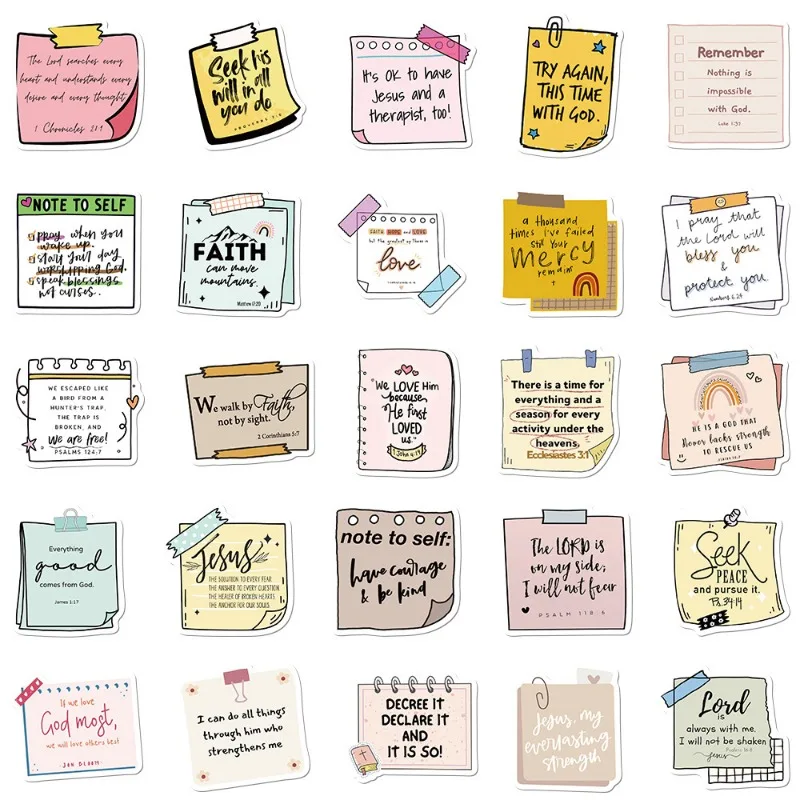 The Lord searches every
heart and understands every
desire and every thought.
1 Chronicles 28:9
Seek his
will in all
you do
PROVERBS 3:6
It's OK to have
Jesus and a
therapist, too!
TRY AGAIN,
THIS TIME
WITH GOD.
Remember
Nothing is
impossible
with God.
Luke 1:37
NOTE TO SELF
pray when you
wake up.
start your day
worshipping God.
speak blessings
not curses.
FAITH
can move
mountains.
Matthew 17:20
FAITH HOPE and LOVE
but the greatest of these is
love.
a thousand
times i've failed
still your
Mercy
remains
I pray that
the Lord will
bless you
&
protect you.
Numbers 6:24
WE ESCAPED LIKE
A BIRD FROM A
HUNTER'S TRAP.
THE TRAP IS
BROKEN, AND
We are free!
PSALMS 124:7
We walk by Faith,
not by sight.
2 Corinthians 5:7
"We LOVE Him
because,
He first
LOVED
us."
1 John 4:19
There is a time for
everything and a
season for every
activity under the
heavens.
Ecclesiastes 3:1
HE IS A GOD THAT
Never lacks strength
TO RESCUE US
Everything
good
comes from God.
James 1:17
Jesus
THE SOLUTION TO EVERY FEAR
THE ANSWER TO EVERY QUESTION
THE HEALER OF BROKEN HEARTS
THE ANCHOR FOR OUR SOULS
note to self:
have courage
& be kind
The LORD is
on my side;
I will not fear
PSALM 118:6
Seek
PEACE
and pursue it.
Ps. 34:14
If we love
God most,
we will love others best
I can do all things
through him who
strengthens me
DECREE IT
DECLARE IT
AND
IT IS SO!
Jesus, my
everlasting
strength
Lord
is
always with me.
I will not be shaken
Psalms 16:8
Jesus